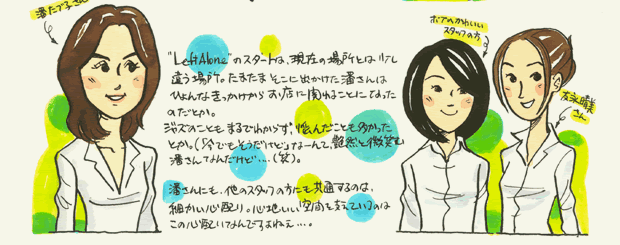 潘たか子さん
"Left Alone"のスタートは、現在の場所とは少し
違う場所。たまたまそこに出かけた潘さんは
ひょんなきっかけからお店に関わることになった
のだとか。
ジャズのこともまるでわからず、悩んだことも多かった
とか。(「今でもそうだけど」なーんて、艶然と微笑む
潘さんなんだけど…(笑)。
潘さんにも、他のスタッフの方にも共通するのは、
細かい心配り。心地いい空間を支えているのは
この心配りなんですよねぇ…。
ホアのかわいい
スタッフの方
さん